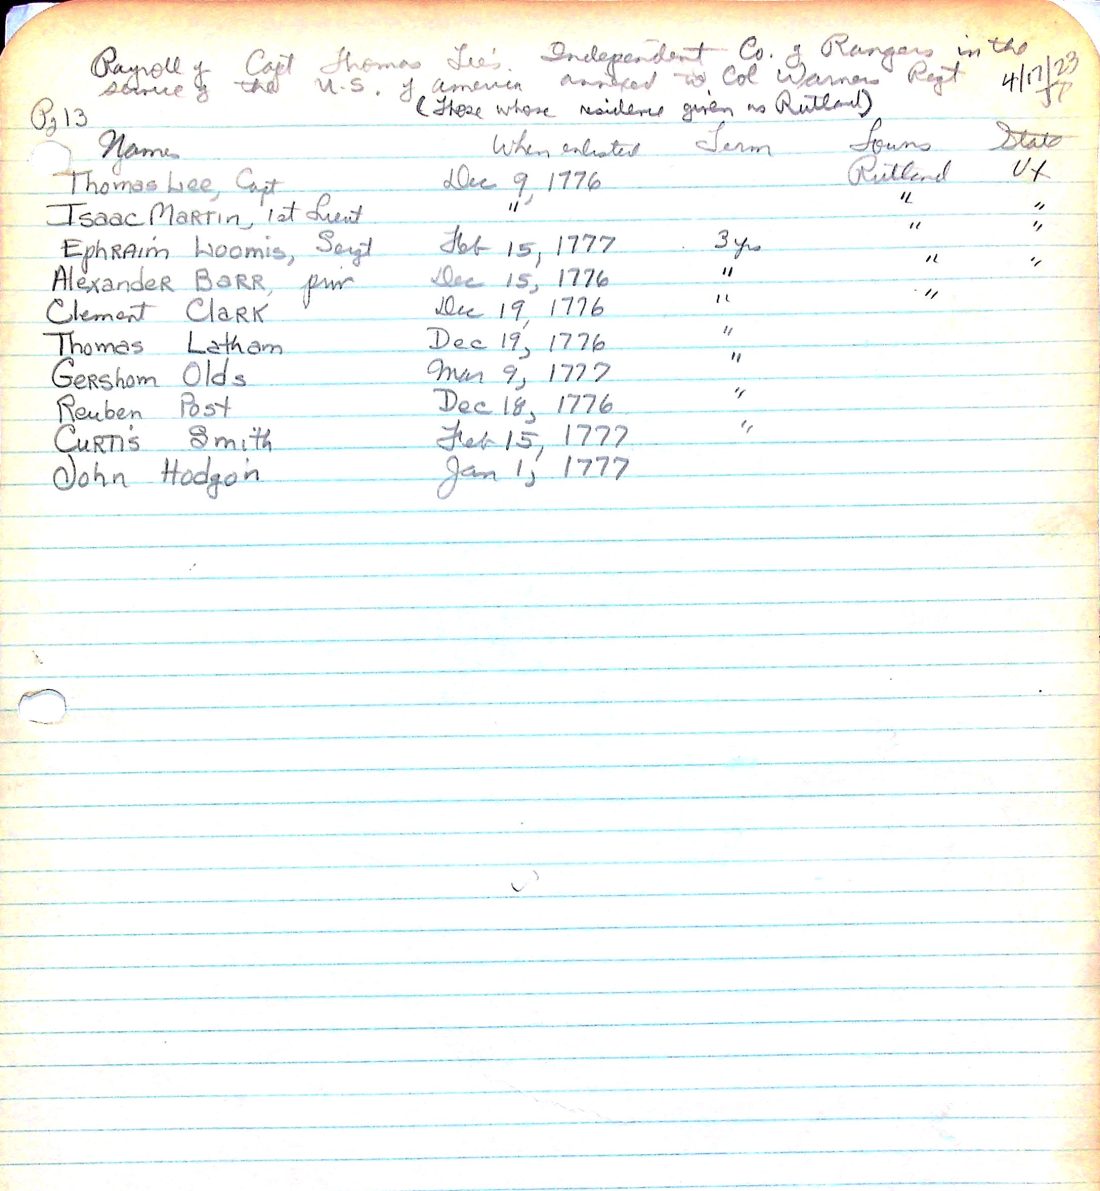 Payroll of Capt Thomas Lee's Independent Co. of Rangers in the
service of the U.S. of America annexed to Col Warners Regt
4/17/23
(Those whose residence given as Rutland)
Pg 13
Names When enlisted Term Towns State
Thomas Lee, Capt Dec 9, 1776 Rutland Vt
Isaac Martin, 1st Lieut " " "
Ephraim Loomis, Sergt Feb 15, 1777 3 yrs " "
Alexander Barr, priv Dec 15, 1776 " " "
Clement Clark Dec 19, 1776 " "
Thomas Latham Dec 19, 1776 "
Gershom Olds Mar 9, 1777 "
Reuben Post Dec 18, 1776 "
Curtis Smith Feb 15, 1777 "
John Hodgson Jan 1, 1777